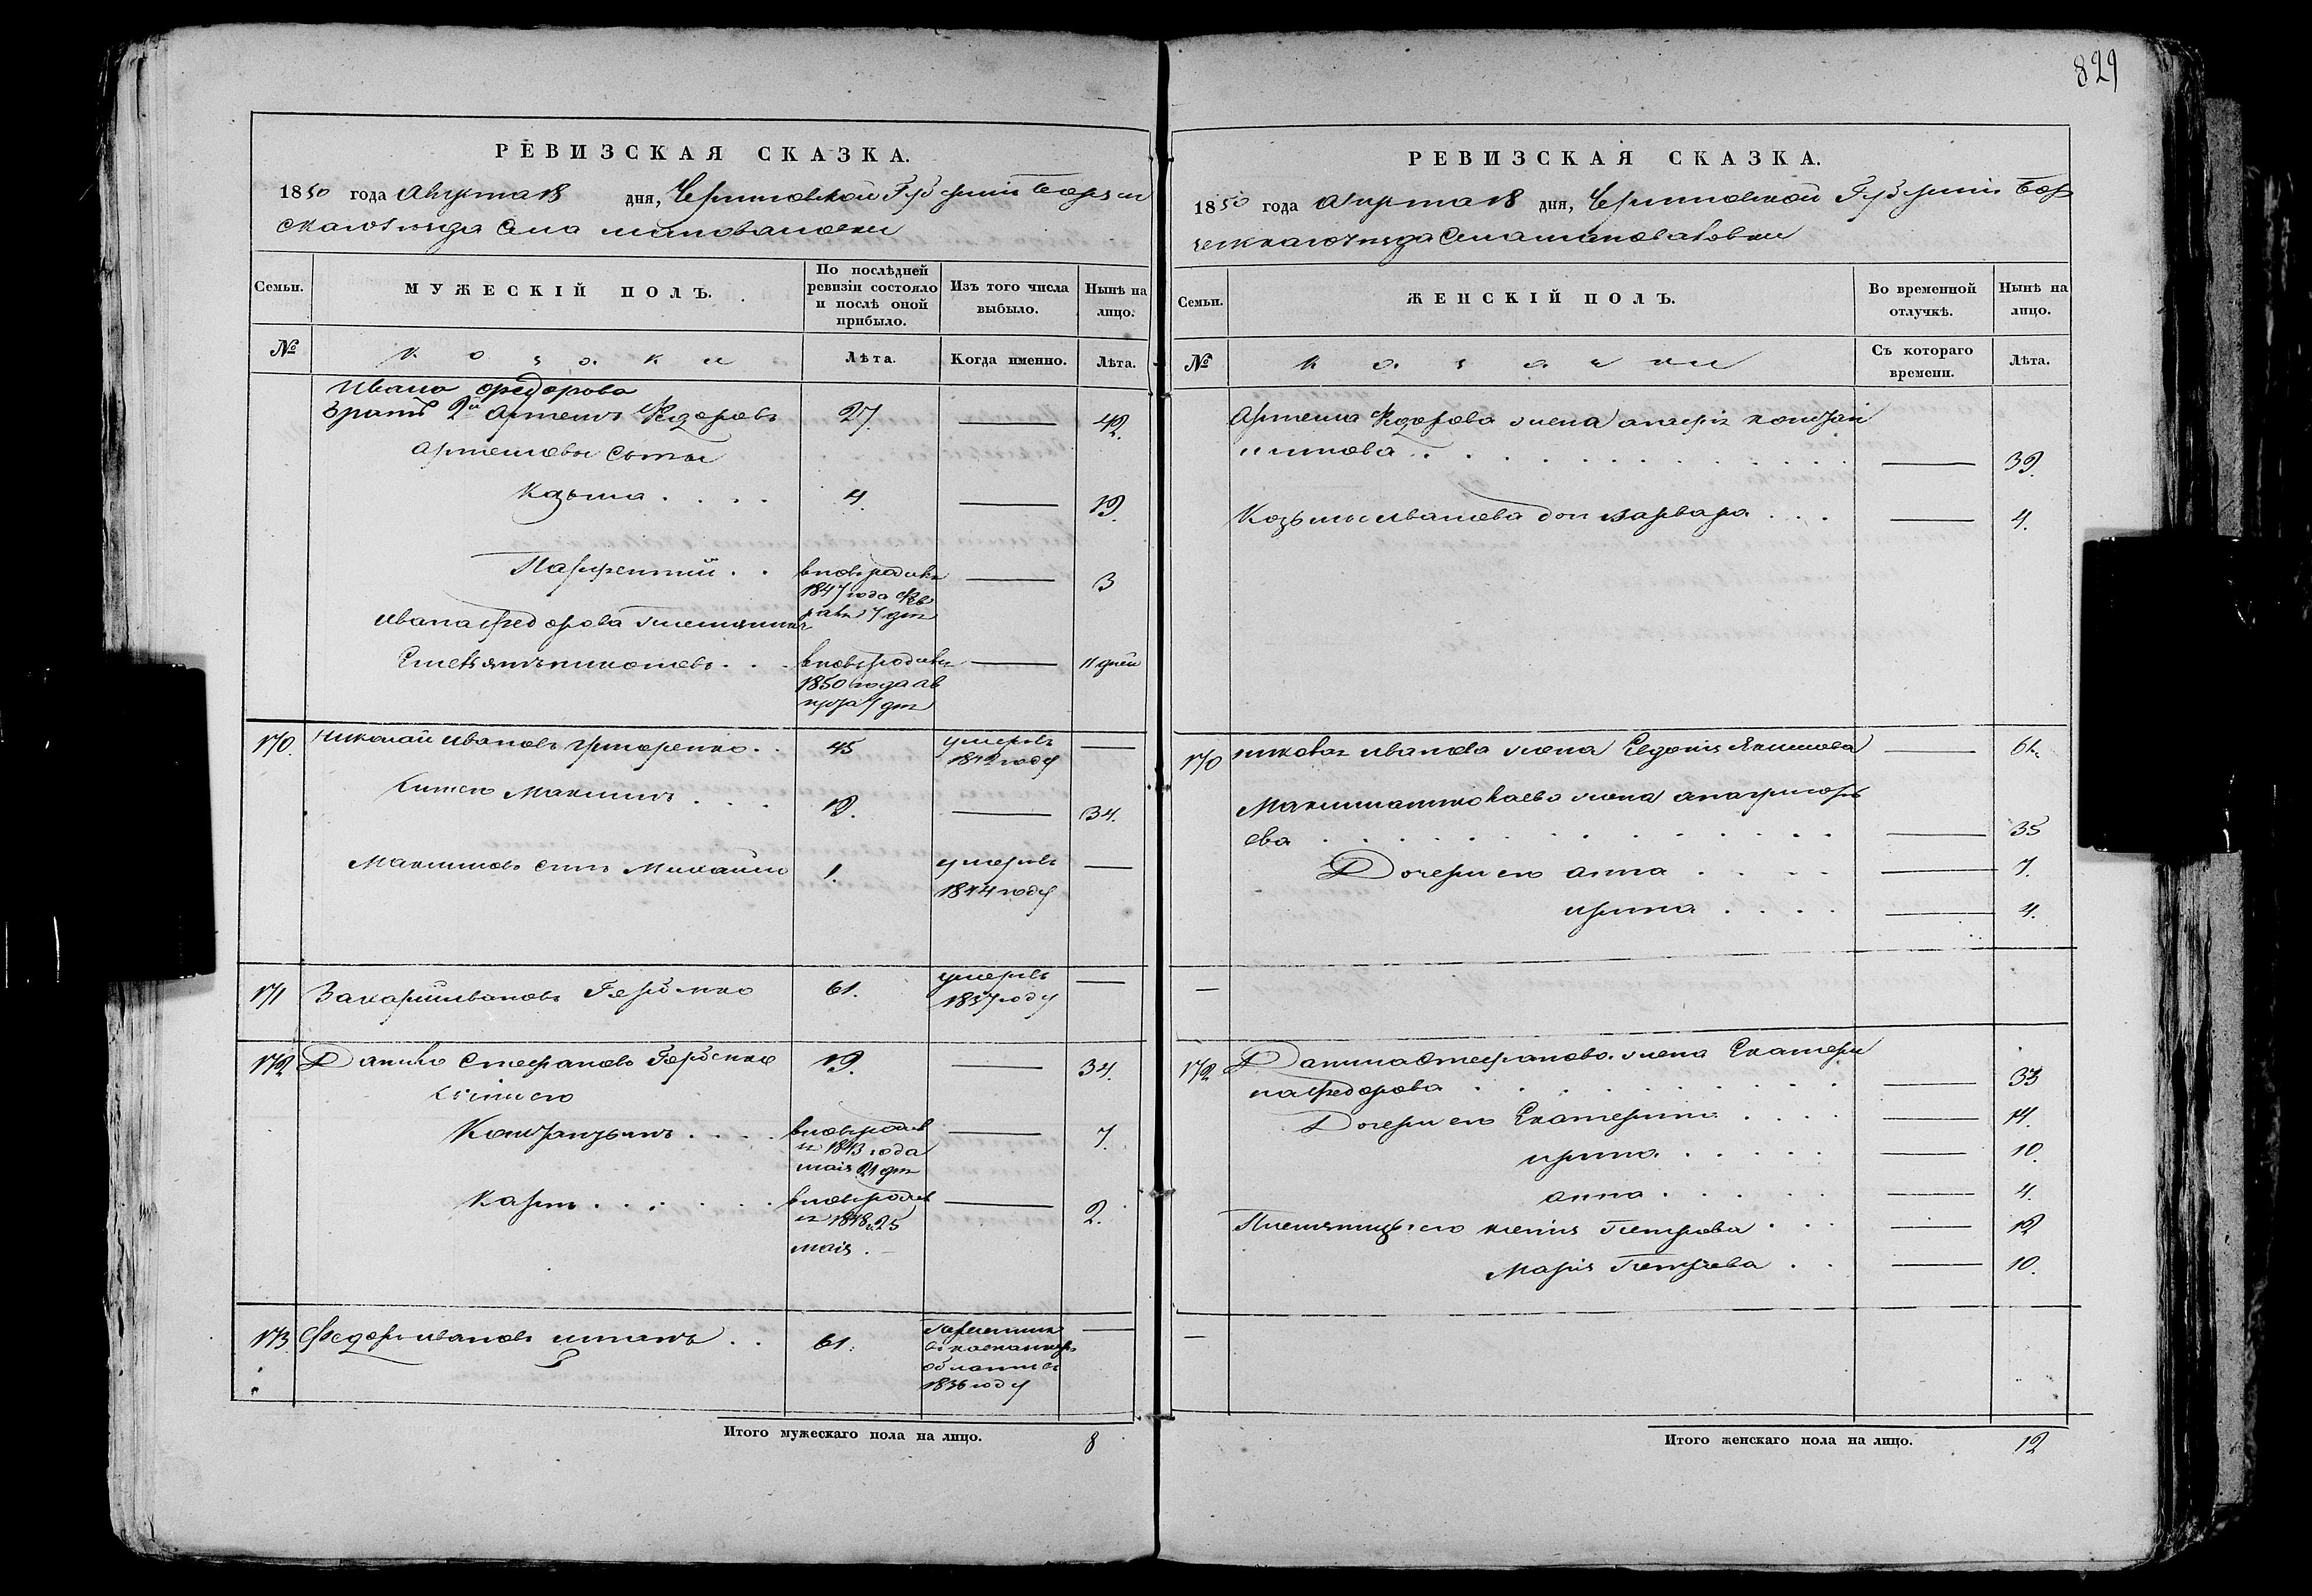 829
РЕВИЗСКАЯ СКАЗКА.
1850 года Августа 18 дня, Черниговской Губерніи Борзен
скаго Уезда Села
Семьи.
МУЖЕСКІЙ ПОЛЪ.
По послѣдней ревизіи состояло и послѣ оной прибыло.
Изъ того числа выбыло.
Нынѣ на лицо.
№
козаки
Лѣта.
Когда именно.
Лѣта.
Ивана Федорова
братъ 2й Артемъ Федоровъ 27. — 42.
Артемовы Сыны
Козьма . . . . 4. — 19.
Парфентий . . вновь родивш — 3
1847 года Фев
Ивана Федорова племянникъ
вновь родивш — 11 дней
1850 года ав
густа 7 дня
170. Николай Ивановъ 45 умеръ —
1842 году
Максимъ . . . 19. — 34.
Максимовъ сынъ Михайло 1. умеръ —
1844 году
171 Захарий Ивановъ Гербенко 61. умеръ —
1837 году
172 Данило Стефановъ Гербенко 19. — 34.
Сыны его
. . . . вновь родив — 7.
ш 1843 года
маія 21 дня
Карпъ . . . . . . . вновь родив — 2.
ш 1848 25
маія.
173. Федоръ Ивановъ . . 61. —
области въ
1836 году
Итого мужескаго пола на лицо. 8
РЕВИЗСКАЯ СКАЗКА.
1850 года Августа 18 дня, Черниговской Губерніи Бор
зенскаго Уезда Села
Семьи.
ЖЕНСКІЙ ПОЛЪ.
Во временной отлучкѣ.
Нынѣ на лицо.
№
козачки
Съ котораго времени.
Лѣта.
Артема Федорова жена
. . . . . . . . . . . — 39.
Козьмы дочь Варвара . . . — 4.
170 Ивановa жена Евдокия Якимова — 61.
Максима Николаева жена Анна Григорь
ева . . . . . . . . . . . — 35
Дочери его Анна . . . . — 7.
Ирина . . . . — 4.
—
172 Данила Стефанова жена Екатери
на Федорова . . . . . . . . . — 33
Дочери его Екатерина . . . . — 14.
Ирина . . . . . — 10.
Анна . . . . . — 4.
Племянницы его Ксенія Петрова . . . — 12
Марія Петрова . . — 10.
—
Итого женскаго пола на лицо. 12